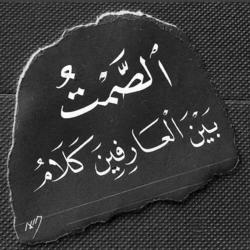 الصَّمْتُ
بَيْنَ الْعَارِفِينَ كَلَامُ